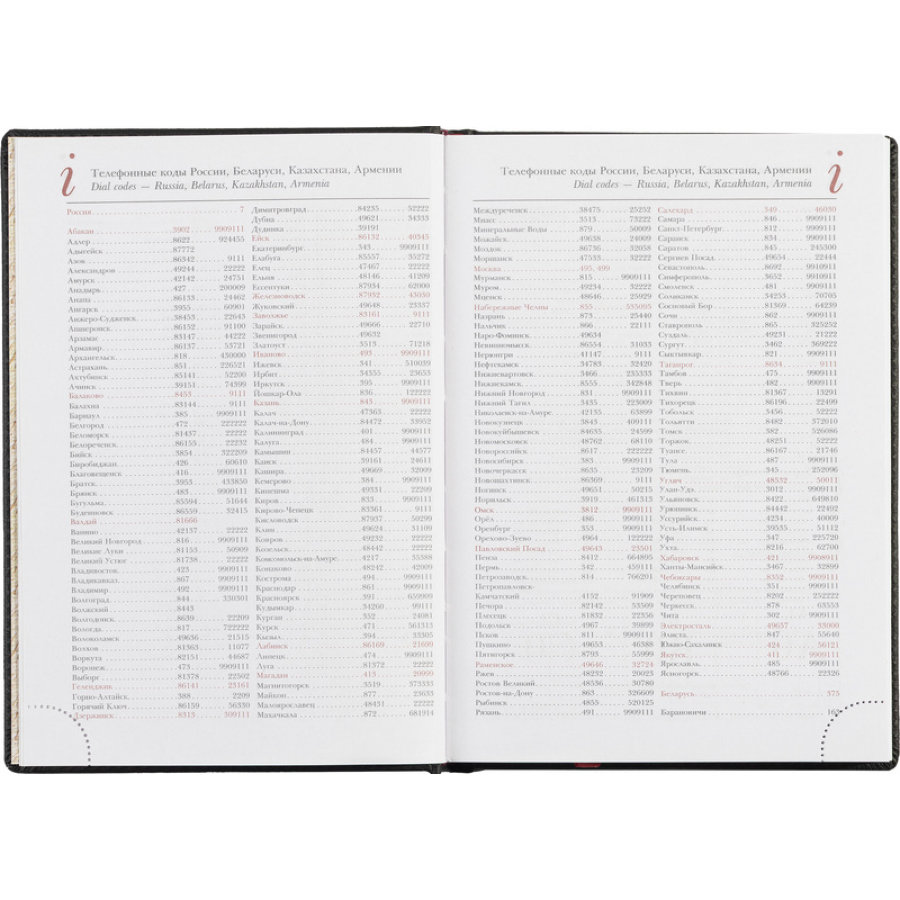 i
Телефонные коды России, Беларуси, Казахстана, Армении
Dial codes — Russia, Belarus, Kazakhstan, Armenia
Россия 7
Абакан 3902 9909111
Адлер 8622 924455
Адыгейск 87772
Азов 86342 9111
Александров 49244 22222
Амурск 42142 24751
Анадырь 427 200009
Анапа 86133 24462
Ангарск 3955 60901
Анжеро-Судженск 38453 22643
Апшеронск 86152 91100
Арзамас 83147 44222
Армавир 86137 53721
Архангельск 818 430000
Астрахань 851 226521
Ахтубинск 85141 52200
Ачинск 39151 74399
Балаково 8453 9111
Балахна 83144 9111
Барнаул 385 9909111
Белгород 472 222222
Беломорск 81437 22222
Белореченск 86155 22232
Бийск 3854 322209
Биробиджан 426 60610
Благовещенск 416 9909111
Братск 3953 433850
Брянск 483 9909111
Бугульма 85594 51644
Буденновск 86559 32415
Валдай 81666
Ванино 42137 22222
Великий Новгород 816 9909111
Великие Луки 81153 50909
Великий Устюг 81738 22222
Владивосток 423 9909111
Владикавказ 867 9909111
Владимир 492 9909111
Волгоград 844 330301
Волжский 8443
Волгодонск 8639 22209
Вологда 817 722222
Волоколамск 49636 21515
Волхов 81363 11077
Воркута 82151 44687
Воронеж 473 9909111
Выборг 81378 22502
Геленджик 86141 23161
Горно-Алтайск 388 2209
Горячий Ключ 86159 56330
Дзержинск 8313 309111
Димитровград 84235 52222
Дубна 49621 34333
Дудинка 39191
Ейск 86132 40345
Екатеринбург 343 9909111
Елабуга 85557 35272
Елец 47467 22222
Ельня 48146 41209
Ессентуки 87934 62000
Железноводск 87932 43030
Жуковский 49648 23337
Заволжье 83161 9111
Зарайск 49666 22710
Звенигород 49632
Златоуст 3513 71218
Иваново 493 9909111
Ижевск 341 510039
Ирбит 34355 23653
Иркутск 395 9909111
Йошкар-Ола 836 122222
Казань 843 9909111
Калач 47363 22222
Калач-на-Дону 84472 33952
Калининград 401 9909111
Калуга 484 9909111
Камышин 84457 44577
Канск 39161 24611
Кашира 49669 32009
Кемерово 384 9909111
Кинешма 49331 22209
Киров 833 9909111
Кирово-Чепецк 83361 9111
Кисловодск 87937 50299
Клин 49624 31109
Ковров 49232 22222
Козельск 48442 22222
Комсомольск-на-Амуре 4217 35388
Конаково 48242 42009
Кострома 494 9909111
Краснодар 861 9909111
Красноярск 391 659909
Кудымкар 34260 99111
Курган 352 24081
Курск 471 561313
Кызыл 394 33305
Лабинск 86169 21699
Липецк 474 9909111
Луга 81372 22222
Магадан 413 20999
Магнитогорск 3519 373333
Майкоп 877 23633
Малоярославец 48431 22222
Махачкала 872 681914
i
Телефонные коды России, Беларуси, Казахстана, Армении
Dial codes — Russia, Belarus, Kazakhstan, Armenia
Междуреченск 38475 25252
Миасс 3513 73222
Минеральные Воды 879 50009
Можайск 49638 24009
Моздок 86736 32058
Моршанск 47533 22222
Москва 495, 499
Мурманск 815 9909111
Муром 49234 32222
Мценск 48646 25929
Набережные Челны 855 535095
Назрань 873 25440
Нальчик 866 22111
Наро-Фоминск 49634
Невинномысск 86554 31033
Нерюнгри 41147 9111
Нефтекамск 34783 32420
Нижневартовск 3466 235333
Нижнекамск 8555 342848
Нижний Новгород 831 9909111
Нижний Тагил 3435 223009
Николаевск-на-Амуре 42135 63899
Новокузнецк 3843 409111
Новокуйбышевск 84635 24599
Новомосковск 48762 68110
Новороссийск 8617 222222
Новосибирск 383 9909111
Новочеркасск 8635 23209
Новошахтинск 86369 9111
Ногинск 49651 50215
Норильск 3919 461313
Омск 3812 9909111
Орёл 486 9909111
Оренбург 353 9909111
Орехово-Зуево 4964 122222
Павловский Посад 49643 23501
Пенза 8412 664895
Пермь 342 459111
Петрозаводск 814 766201
Петропавловск-
Камчатский 4152 91909
Печора 82142 53509
Плесецк 81832 22356
Подольск 4967 39899
Псков 811 9909111
Пушкино 49653 46388
Пятигорск 8793 55999
Раменское 49646 32724
Ржев 48232 20023
Ростов Великий 48536 30780
Ростов-на-Дону 863 326609
Рыбинск 4855 520125
Рязань 491 9909111
Салехард 349 46030
Самара 846 9909111
Санкт-Петербург 812 9909111
Саранск 834 9909111
Саратов 845 245300
Сергиев Посад 49654 22444
Севастополь 8692 9910911
Симферополь 3652 9910911
Смоленск 481 9909111
Соликамск 34253 70705
Сосновый Бор 81369 64239
Сочи 862 9909111
Ставрополь 865 325252
Суздаль 49231 21222
Сургут 3462 369222
Сыктывкар 821 9909111
Таганрог 8634 9111
Тамбов 475 9909111
Тверь 482 9909111
Тихвин 81367 13291
Тихорецк 86196 22499
Тобольск 3456 52222
Тольятти 8482 372010
Томск 382 526086
Торжок 48251 52222
Туапсе 86167 21746
Тула 487 9909111
Тюмень 345 252096
Углич 48532 50011
Улан-Удэ 3012 9909111
Ульяновск 8422 649810
Урюпинск 84442 22492
Уссурийск 4234 40009
Усть-Илимск 39535 51112
Уфа 347 225720
Ухта 8216 62700
Хабаровск 421 9908911
Ханты-Мансийск 3467 32899
Чебоксары 8352 9909111
Челябинск 351 9909111
Череповец 8202 252222
Черкесск 878 63553
Чита 302 9909111
Электросталь 49657 33000
Элиста 847 55640
Южно-Сахалинск 424 56121
Якутск 411 9909111
Ярославль 485 9909111
Ясногорск 48766 22326
Беларусь 375
Барановичи 163